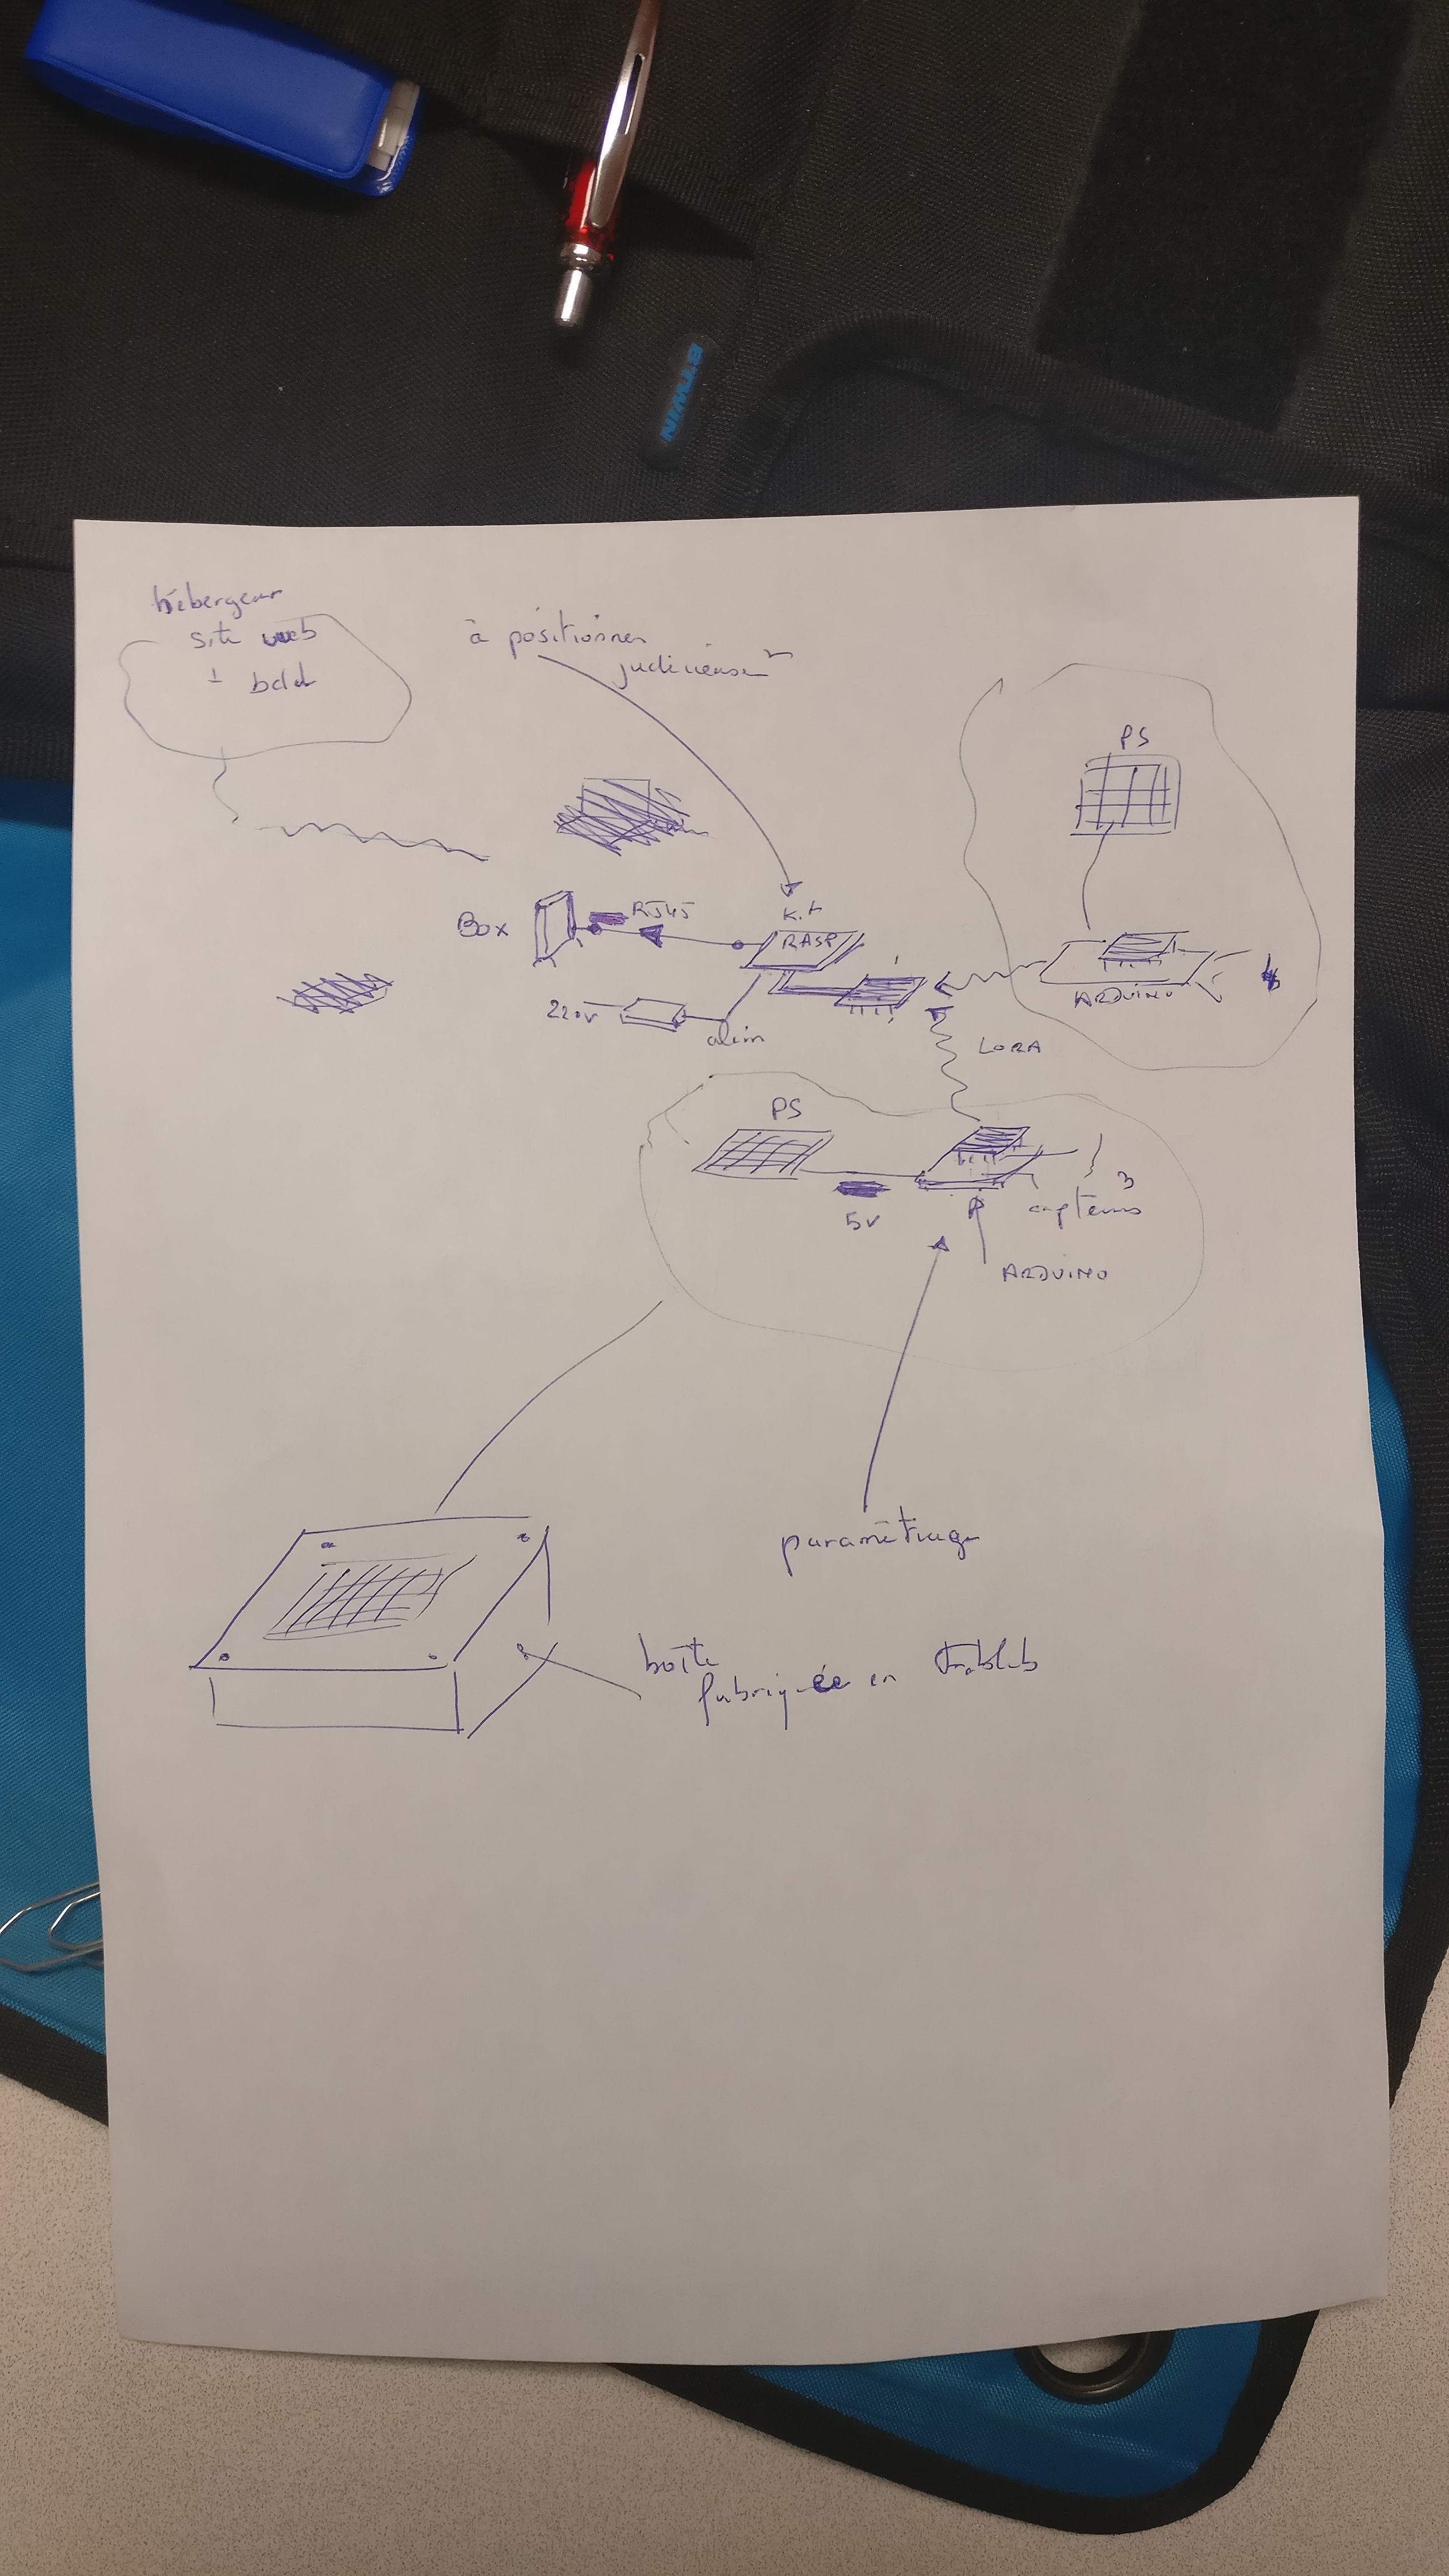 BTWIN
hébergeur
site web
+ bdd
à positionner
judicieuse^t
PS
Box
RJ45
Kit
RASP
220V
alim
ARDUINO
LORA
PS
5V
3
capteurs
ARDUINO
paramétrage
boîte
fabriquée en Fablab